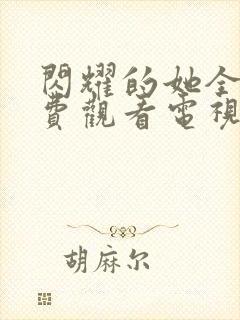 閃耀的她全
費觀看電視
胡麻尔